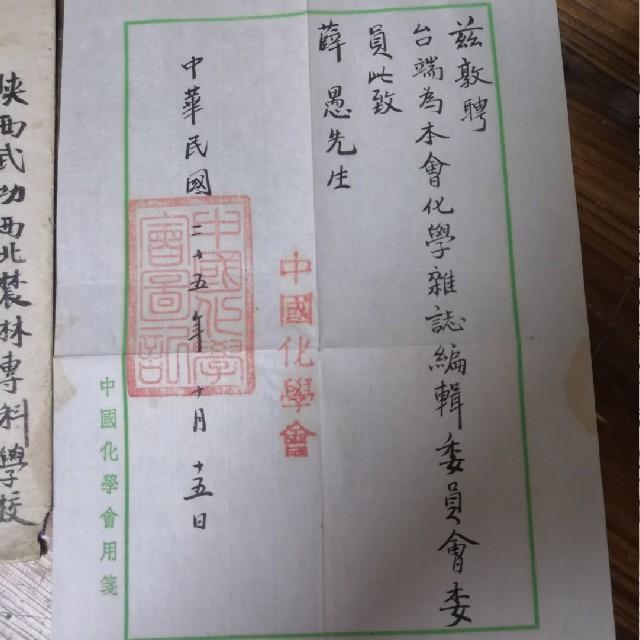 茲敦聘
台端為本會化學雜誌編輯委員會委
員此致
薛愚先生
中國化學會
中華民國二十五年十月十五日
中國化學會圖記
中國化學會用箋
陕西武功西北農林專科學校